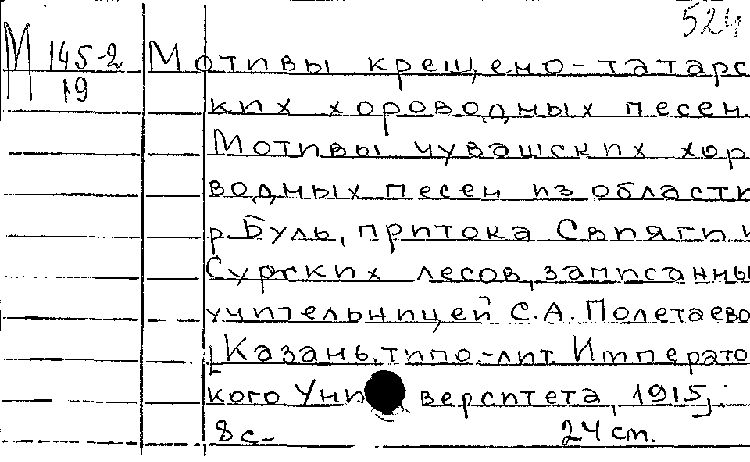 524
М 145-2 Мотивы крещено-татарс
19 ких хороводных песен.
Мотивы чувашских хор
водных песен из области
р. Буль, притока Свияги и
Сурских лесов, записанны
учительницей С.А. Полетаево
[Казань. типо-лит. Императо
кого Университета, 1915].
8 с. 24 cm.